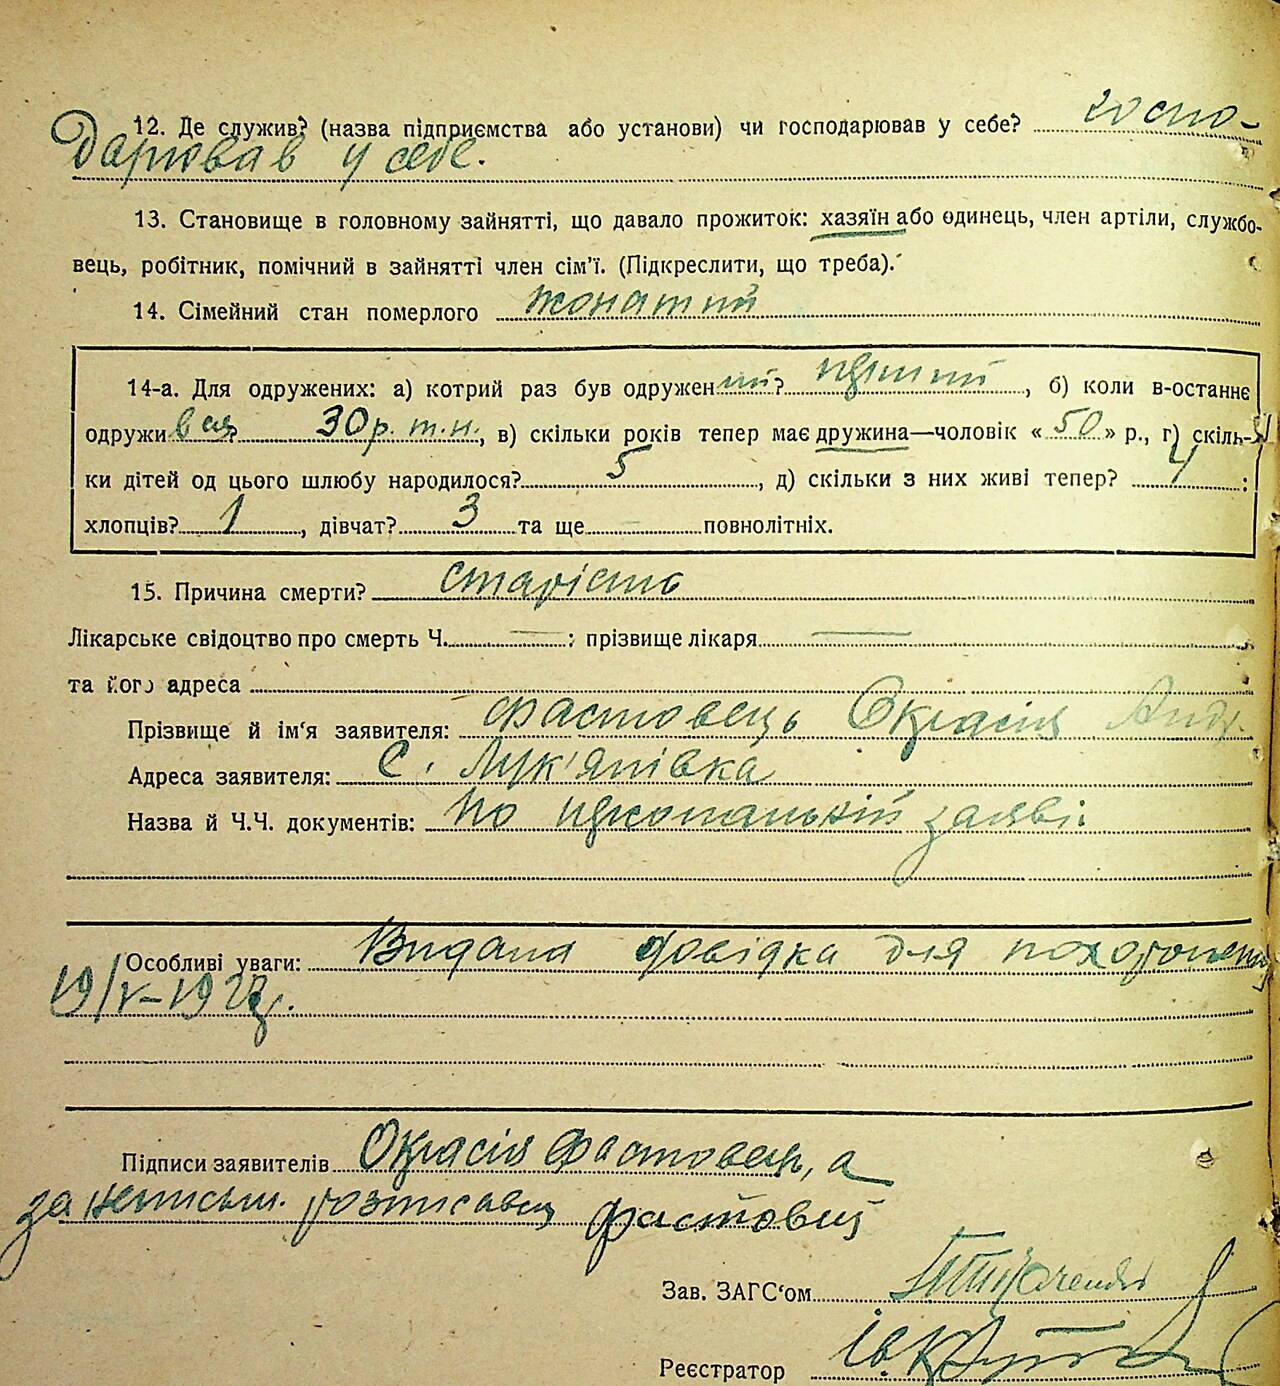 12. Де служив? (назва підприємства або установи) чи господарював у себе? госпо-
дарював у себе.
13. Становище в головному зайнятті, що давало прожиток: хазяїн або одинець, член артіли, службо-
вець, робітник, помічний в зайнятті член сім'ї. (Підкреслити, що треба).
14. Сімейний стан померлого жонатий
14-а. Для одружених: а) котрий раз був одружений? перший, б) коли в-останнє
одруживсь? 30 р. т.н., в) скільки років тепер має дружина—чоловік «50» р., г) скіль-
ки дітей од цього шлюбу народилося? 5, д) скільки з них живі тепер? 4:
хлопців? 1, дівчат? 3 та ще — повнолітніх.
15. Причина смерти? старість
Лікарське свідоцтво про смерть Ч. — : прізвище лікаря —
та його адреса
Прізвище й ім'я заявителя: Фастовець Окрасія Андр.
Адреса заявителя: с. Лук'янівка
Назва й Ч.Ч. документів: по персональній заяві.
Особливі уваги: Видана довідка для похоронення
19/V-1927р.
Підписи заявителів Окрасія Фастовець, а
за неписьм. розписавсь Фастовець
Зав. ЗАГС'ом
Реєстратор